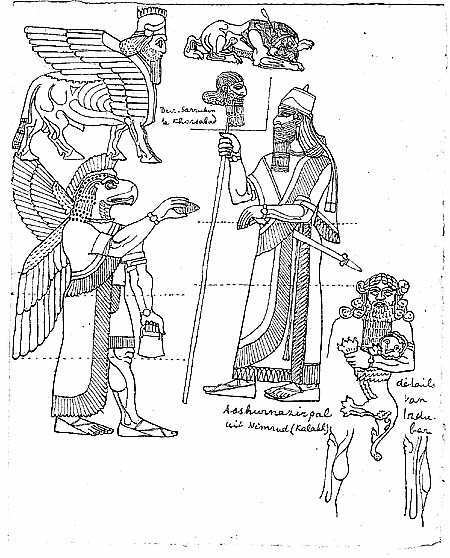 Dur-Sarrukin
te Khorsabad
Asshurnazirpal
uit Nimrud (Kalakh)
details
van
Indu-
bar